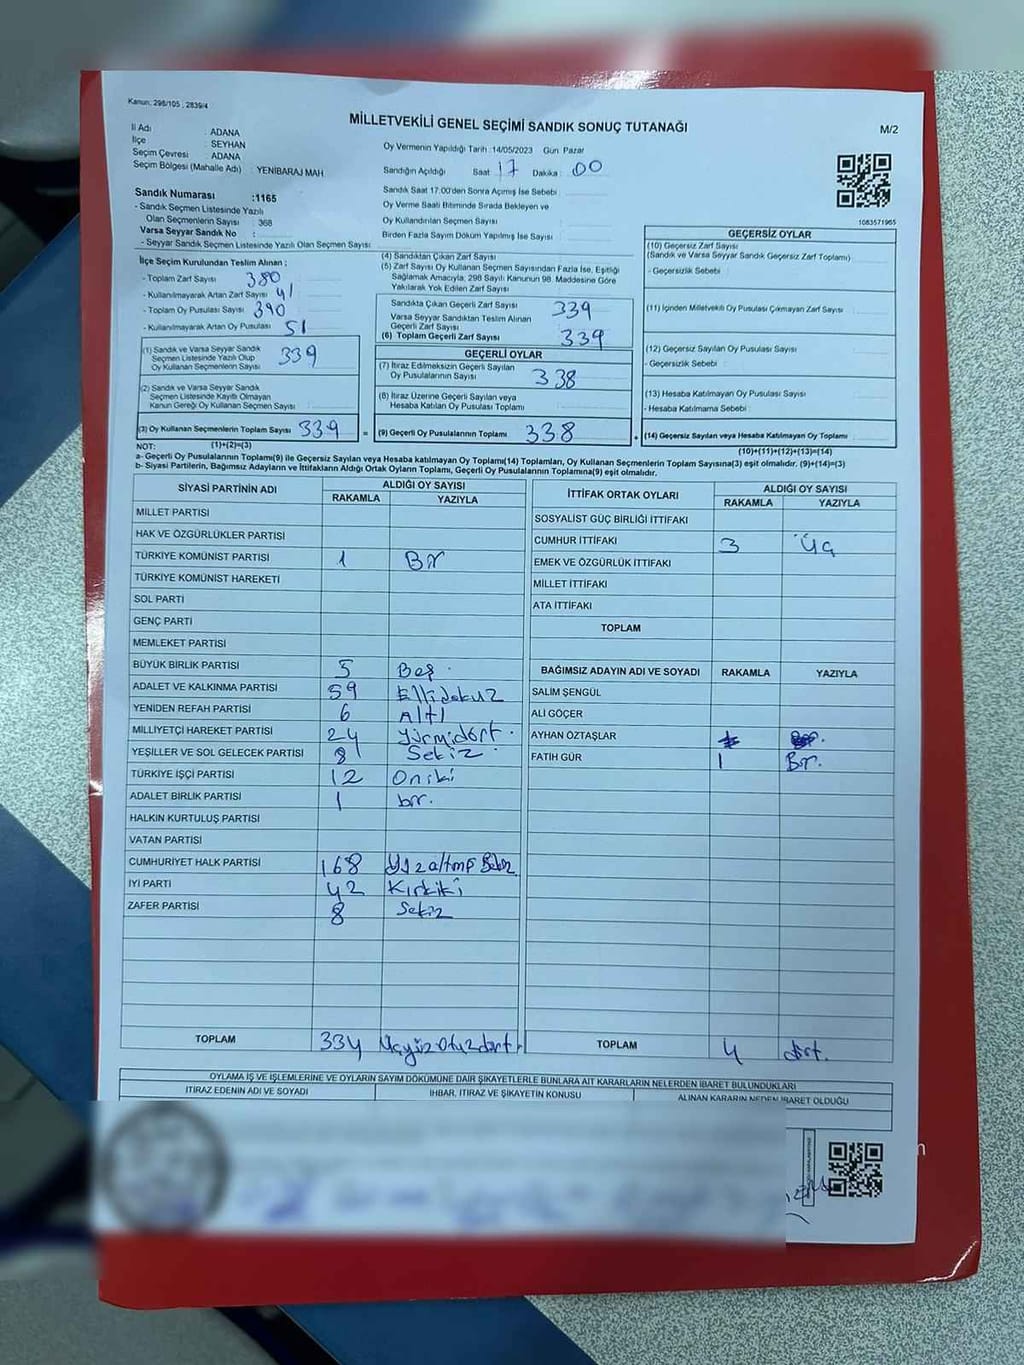 Kanun: 298/105 , 2839/4
MİLLETVEKİLİ GENEL SEÇİMİ SANDIK SONUÇ TUTANAĞI
M/2
İl Adı : ADANA
İlçe : SEYHAN
Seçim Çevresi : ADANA
Seçim Bölgesi (Mahalle Adı) : YENİBARAJ MAH
Sandık Numarası :1165
- Sandık Seçmen Listesinde Yazılı
Olan Seçmenlerin Sayısı : 368
Varsa Seyyar Sandık No :
- Seyyar Sandık Seçmen Listesinde Yazılı Olan Seçmen Sayısı :
Oy Vermenin Yapıldığı Tarih :14/05/2023 Gün Pazar
Sandığın Açıldığı Saat 17 Dakika : 00
Sandık Saat 17:00'den Sonra Açılmış İse Sebebi :
Oy Verme Saati Bitiminde Sırada Bekleyen ve
Oy Kullandırılan Seçmen Sayısı :
Birden Fazla Sayım Döküm Yapılmış İse Sayısı :
1083571965
İlçe Seçim Kurulundan Teslim Alınan ;
- Toplam Zarf Sayısı 380
- Kullanılmayarak Artan Zarf Sayısı 41
- Toplam Oy Pusulası Sayısı 390
- Kullanılmayarak Artan Oy Pusulası 51
(1) Sandık ve Varsa Seyyar Sandık
Seçmen Listesinde Yazılı Olup
Oy Kullanan Seçmenlerin Sayısı 339
(2) Sandık ve Varsa Seyyar Sandık
Seçmen Listesinde Kayıtlı Olmayan
Kanun Gereği Oy Kullanan Seçmen Sayısı
(3) Oy Kullanan Seçmenlerin Toplam Sayısı 339 =
(4) Sandıktan Çıkan Zarf Sayısı
(5) Zarf Sayısı Oy Kullanan Seçmen Sayısından Fazla İse, Eşitliği
Sağlamak Amacıyla, 298 Sayılı Kanunun 98. Maddesine Göre
Yakılarak Yok Edilen Zarf Sayısı
Sandıkta Çıkan Geçerli Zarf Sayısı 339
Varsa Seyyar Sandıktan Teslim Alınan
Geçerli Zarf Sayısı
(6) Toplam Geçerli Zarf Sayısı 339
GEÇERLİ OYLAR
(7) İtiraz Edilmeksizin Geçerli Sayılan
Oy Pusulalarının Sayısı 338
(8) İtiraz Üzerine Geçerli Sayılan veya
Hesaba Katılan Oy Pusulası Toplamı
(9) Geçerli Oy Pusulalarının Toplamı 338 +
GEÇERSİZ OYLAR
(10) Geçersiz Zarf Sayısı
(Sandık ve Varsa Seyyar Sandık Geçersiz Zarf Toplamı)
- Geçersizlik Sebebi
(11) İçinden Milletvekili Oy Pusulası Çıkmayan Zarf Sayısı
(12) Geçersiz Sayılan Oy Pusulası Sayısı
- Geçersizlik Sebebi
(13) Hesaba Katılmayan Oy Pusulası Sayısı
- Hesaba Katılmama Sebebi
(14) Geçersiz Sayılan veya Hesaba Katılmayan Oy Toplamı
NOT: (1)+(2)=(3)
(10)+(11)+(12)+(13)=(14)
a- Geçerli Oy Pusulalarının Toplamı(9) ile Geçersiz Sayılan veya Hesaba katılmayan Oy Toplamı(14) Toplamları, Oy Kullanan Seçmenlerin Toplam Sayısına(3) eşit olmalıdır. (9)+(14)=(3)
b- Siyasi Partilerin, Bağımsız Adayların ve İttifakların Aldığı Ortak Oyların Toplamı, Geçerli Oy Pusulalarının Toplamına(9) eşit olmalıdır.
SİYASİ PARTİNİN ADI
ALDIĞI OY SAYISI
RAKAMLA YAZIYLA
MİLLET PARTİSİ
HAK VE ÖZGÜRLÜKLER PARTİSİ
TÜRKİYE KOMÜNİST PARTİSİ 1 Bir
TÜRKİYE KOMÜNİST HAREKETİ
SOL PARTİ
GENÇ PARTİ
MEMLEKET PARTİSİ
BÜYÜK BİRLİK PARTİSİ 5 Beş
ADALET VE KALKINMA PARTİSİ 59 Ellidokuz
YENİDEN REFAH PARTİSİ 6 Altı
MİLLİYETÇİ HAREKET PARTİSİ 24 yirmidört
YEŞİLLER VE SOL GELECEK PARTİSİ 8 Sekiz
TÜRKİYE İŞÇİ PARTİSİ 12 Oniki
ADALET BİRLİK PARTİSİ 1 bir.
HALKIN KURTULUŞ PARTİSİ
VATAN PARTİSİ
CUMHURİYET HALK PARTİSİ 168 Yüzaltmış Sekiz
İYİ PARTİ 42 Kırkiki
ZAFER PARTİSİ 8 Sekiz
TOPLAM 334 Üçyüzotuzdört
İTTİFAK ORTAK OYLARI
ALDIĞI OY SAYISI
RAKAMLA YAZIYLA
SOSYALİST GÜÇ BİRLİĞİ İTTİFAKI
CUMHUR İTTİFAKI 3 Üç
EMEK VE ÖZGÜRLÜK İTTİFAKI
MİLLET İTTİFAKI
ATA İTTİFAKI
TOPLAM
BAĞIMSIZ ADAYIN ADI VE SOYADI RAKAMLA YAZIYLA
SALİM ŞENGÜL
ALİ GÖÇER
AYHAN ÖZTAŞLAR
FATİH GÜR 1 Bir.
TOPLAM 4 dört.
OYLAMA İŞ VE İŞLEMLERİNE VE OYLARIN SAYIM DÖKÜMÜNE DAİR ŞİKAYETLERLE BUNLARA AİT KARARLARIN NELERDEN İBARET BULUNDUKLARI
İTİRAZ EDENİN ADI VE SOYADI
İHBAR, İTİRAZ VE ŞİKAYETİN KONUSU
ALINAN KARARIN NEDEN İBARET OLDUĞU